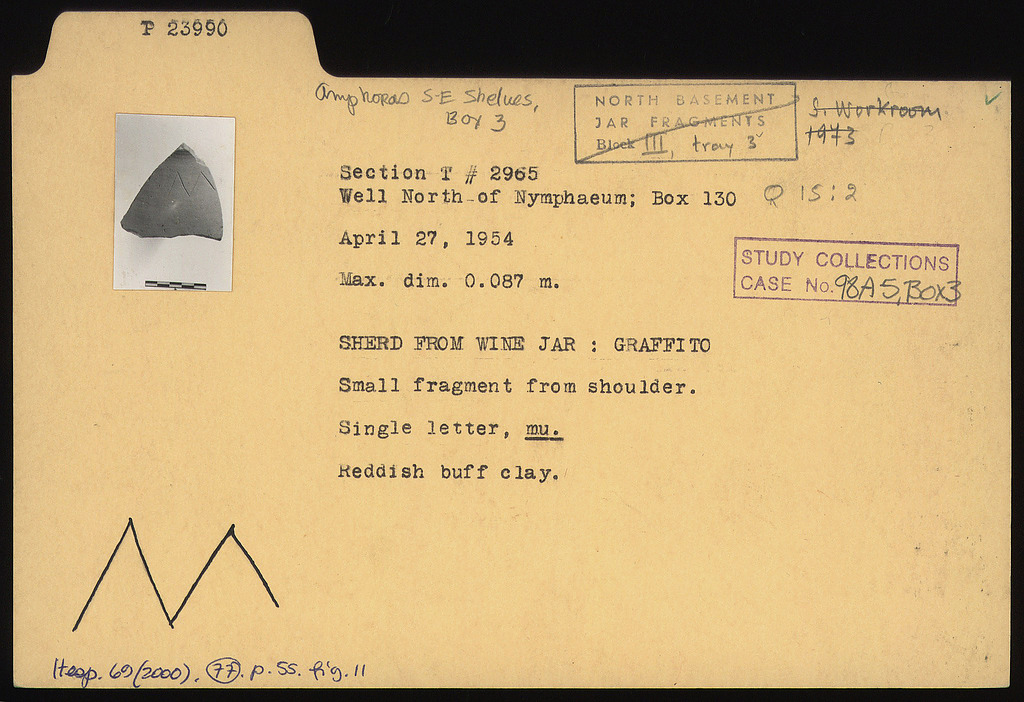 P 23990
Amphoras S-E Shelves,
Box 3
NORTH BASEMENT
JAR FRAGMENTS
Block III, tray 3
S. Workroom
1973
Section T # 2965
Well North of Nymphaeum; Box 130 Q 15:2
April 27, 1954
Max. dim. 0.087 m.
STUDY COLLECTIONS
CASE No. 98A5, Box3
SHERD FROM WINE JAR : GRAFFITO
Small fragment from shoulder.
Single letter, mu.
Reddish buff clay.
M
Hesp. 69 (2000), 77. p. 55. fig. 11